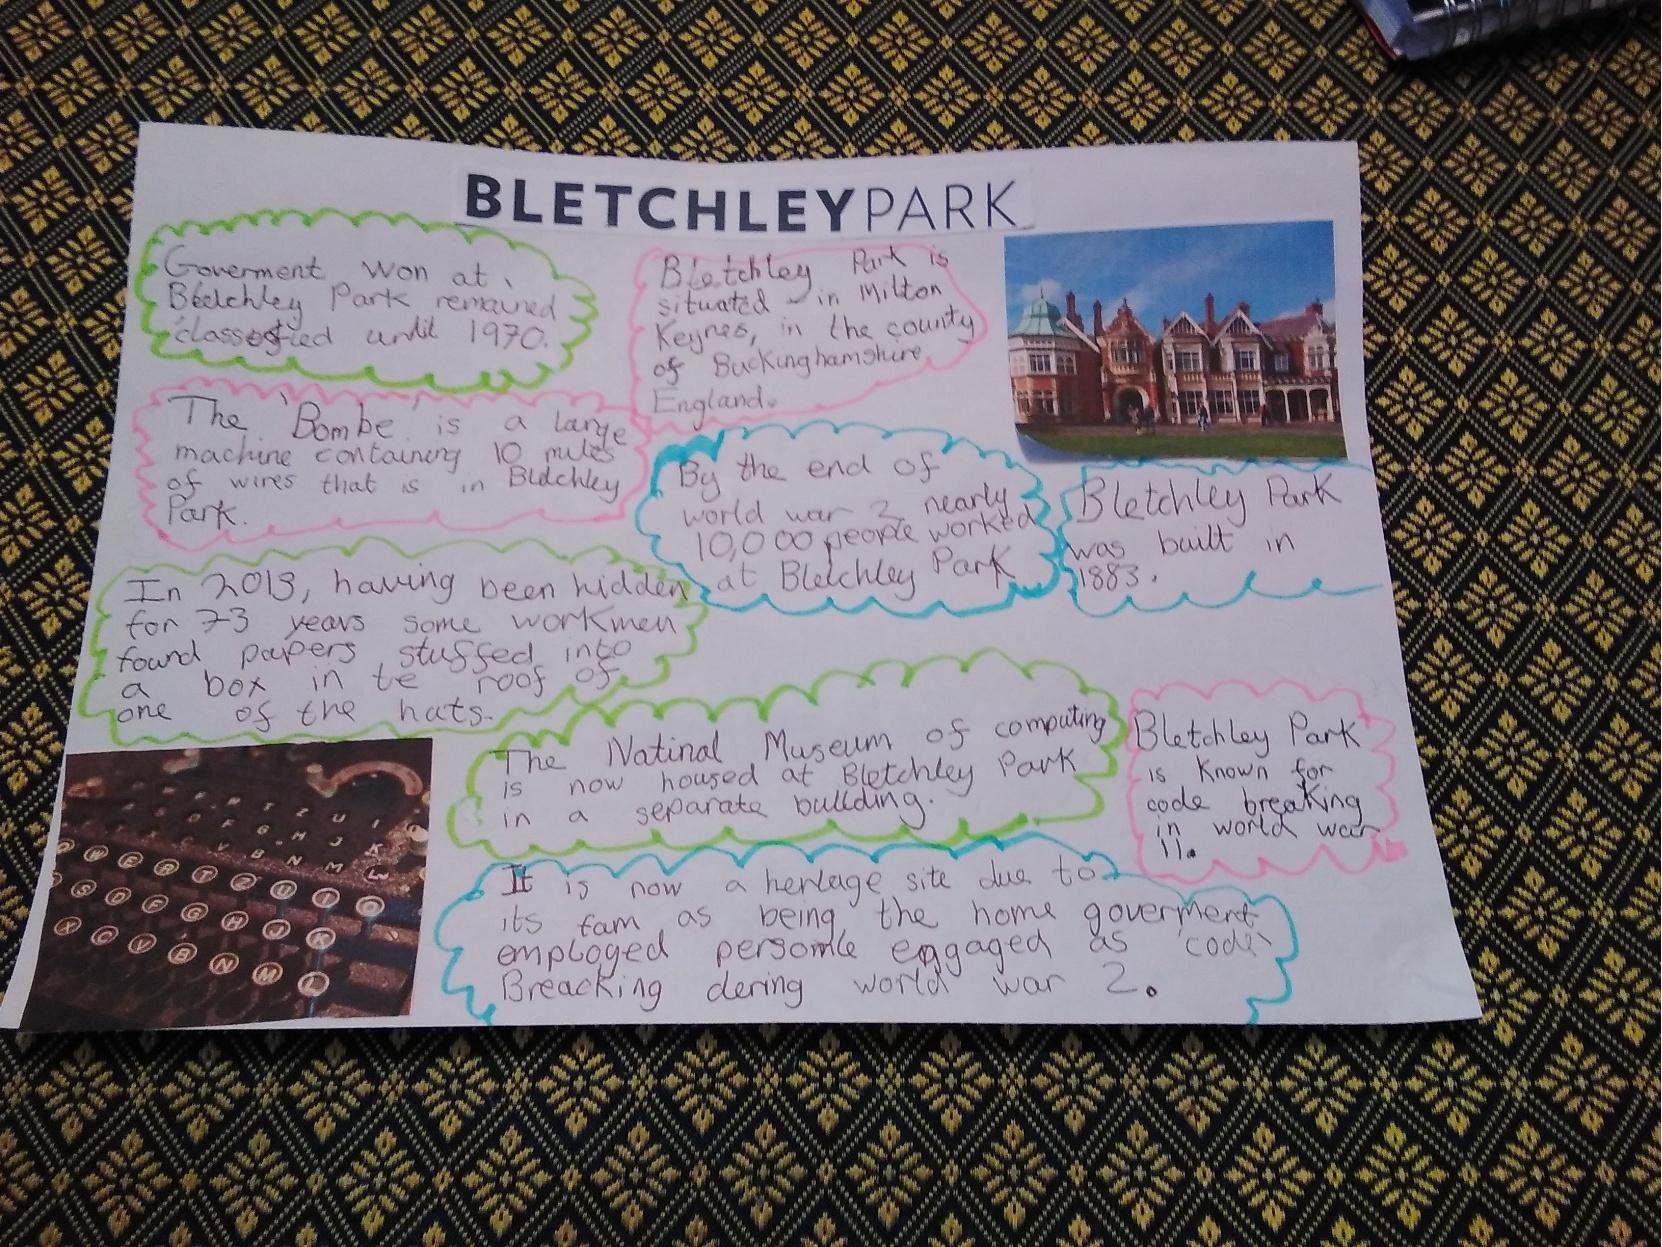 BLETCHLEYPARK
Goverment won at
Bletchley Park remained
classesfied until 1970.
Bletchley Park is
situated in Milton
Keynes, in the county
of Buckinghamshire
England.
The 'Bombe' is a large
machine containing 10 miles
of wires that is in Bletchley
Park.
By the end of
world war 2 nearly
10,000 people worked
at Bletchley Park
Bletchley Park
was built in
1883.
In 2013, having been hidden
for 73 years some workmen
found papers stuffed into
a box in te roof of
one of the huts.
The Natinal Museum of computing
is now housed at Bletchley Park
in a separate building.
Bletchley Park
is known for
code breaking
in world war
11.
It is now a heritage site due to
its fam as being the home goverment
employed personnle engaged as 'code
Breacking dering world war 2.
Q W E R T Z U I O
A S D F G H J K
Y X C V B N M L